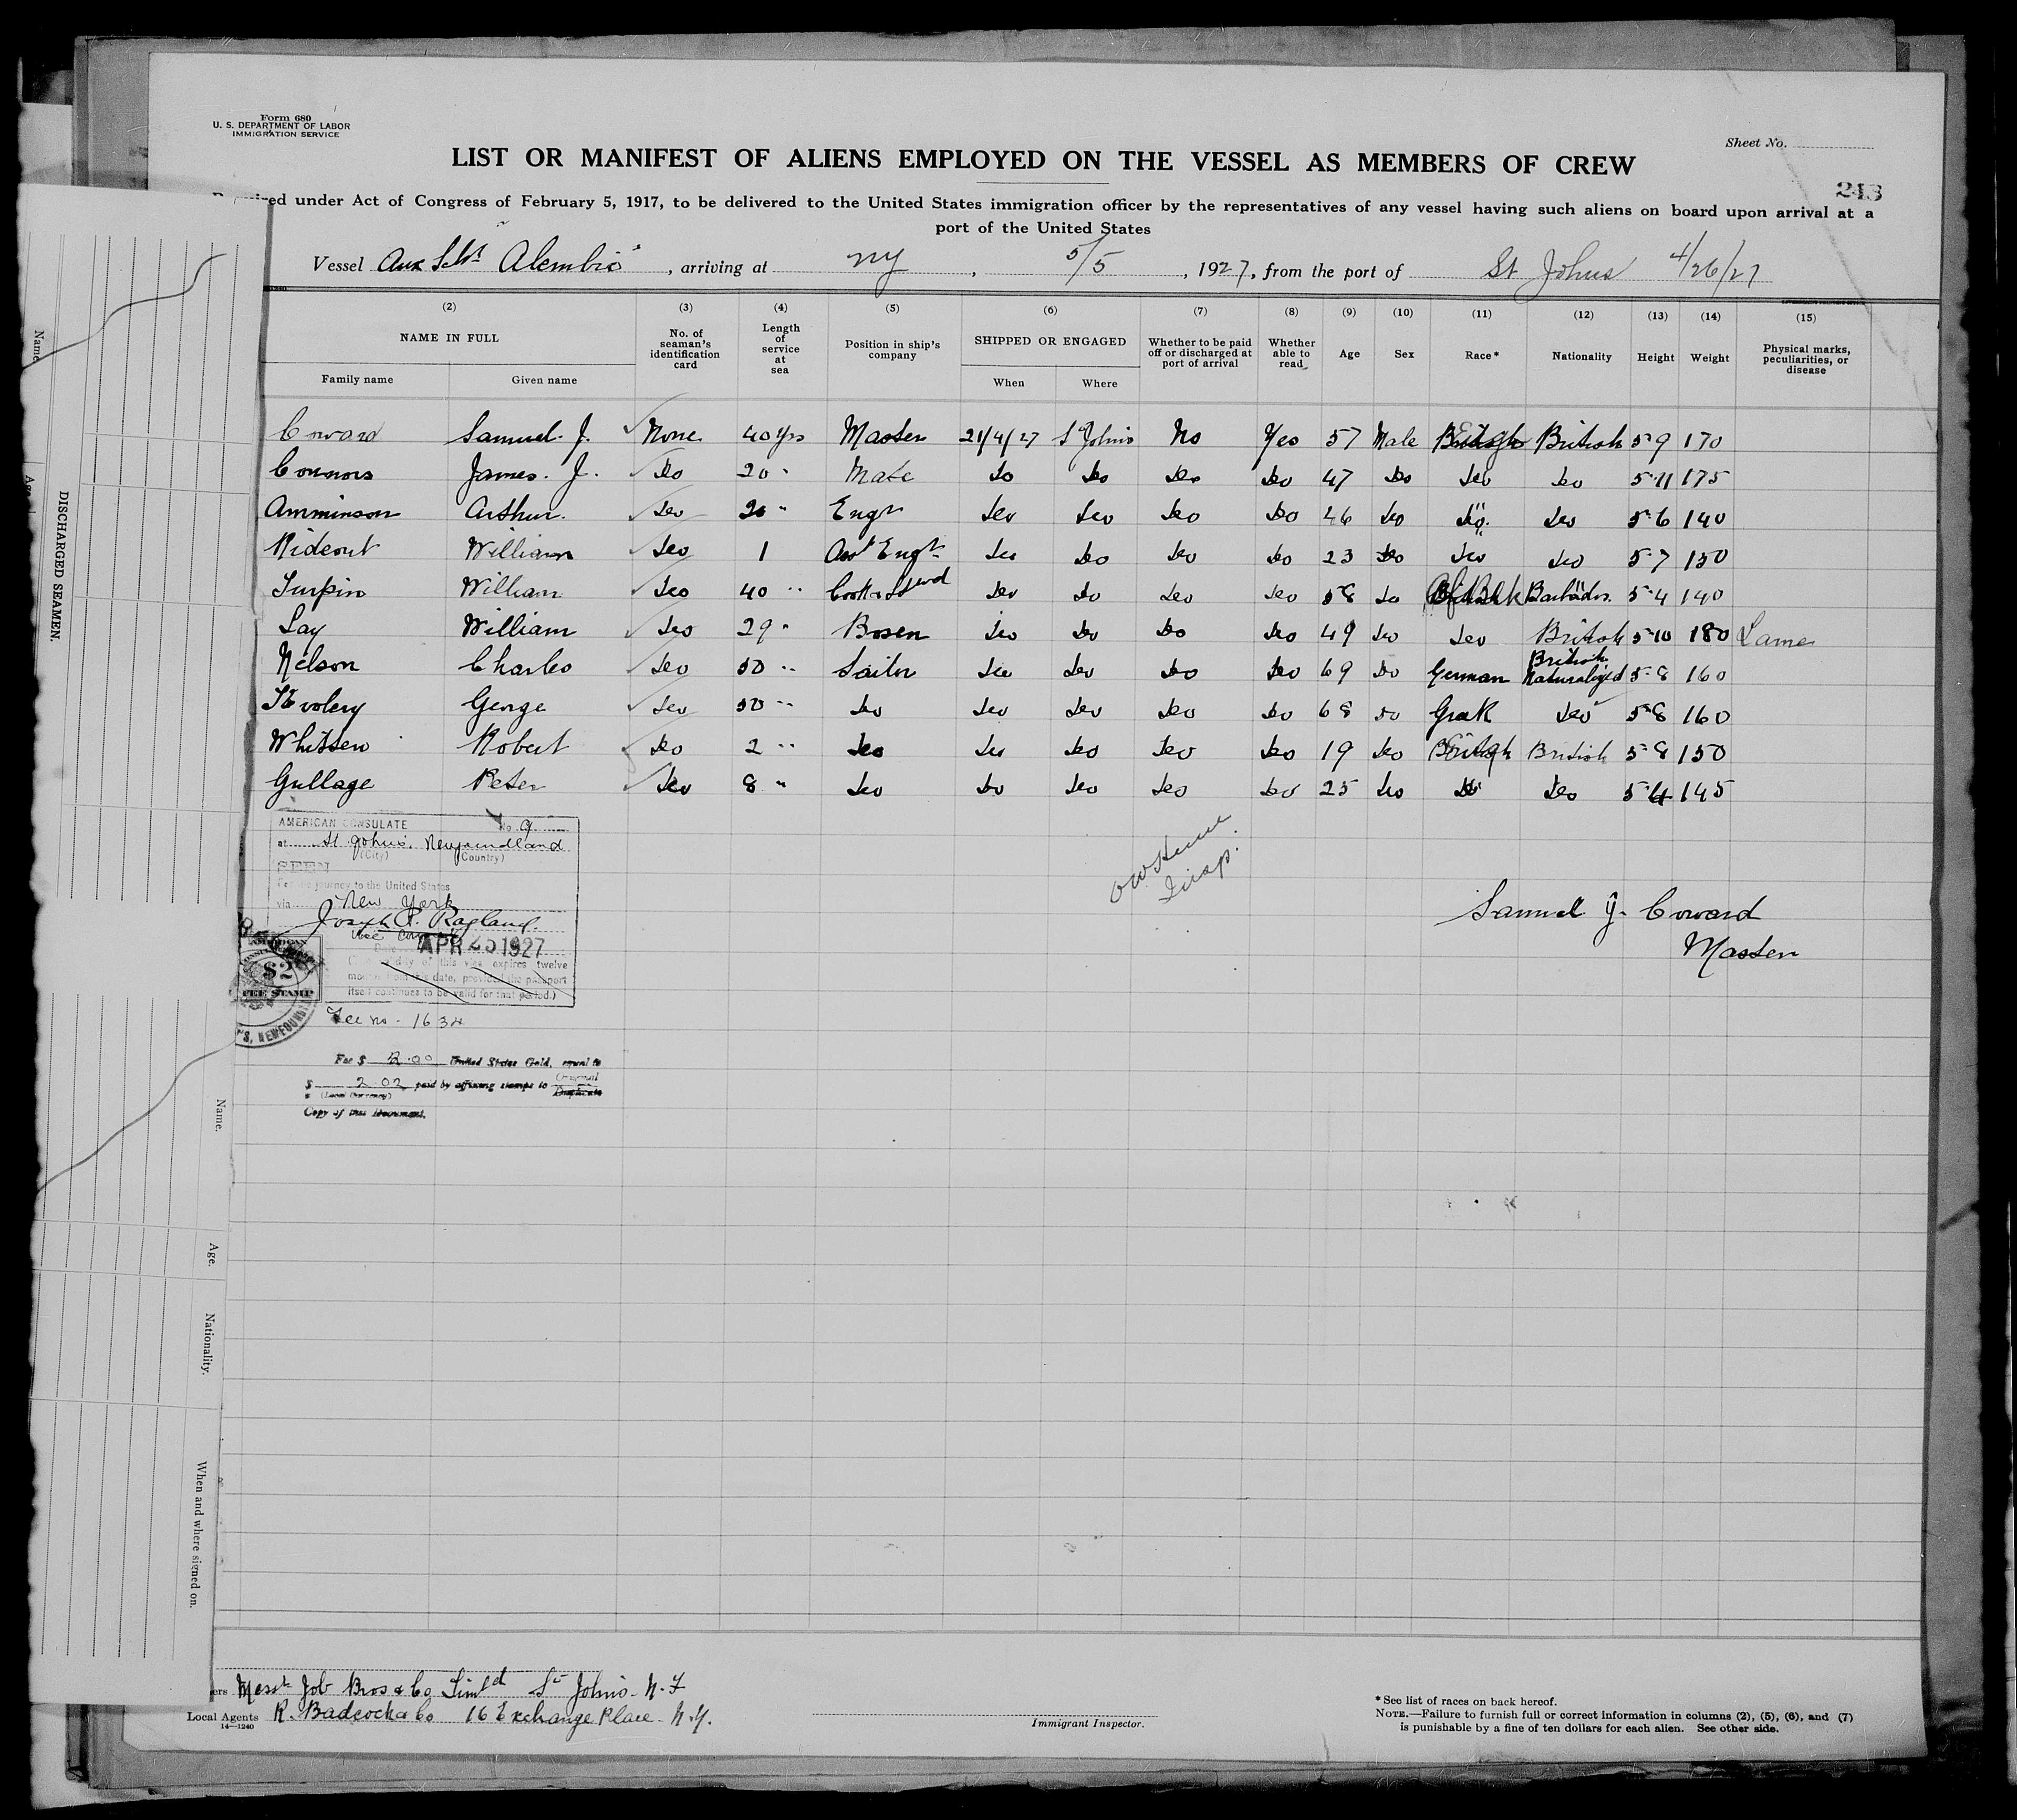 Form 680
U. S. DEPARTMENT OF LABOR
IMMIGRATION SERVICE
Sheet No.
LIST OR MANIFEST OF ALIENS EMPLOYED ON THE VESSEL AS MEMBERS OF CREW
243
under Act of Congress of February 5, 1917, to be delivered to the United States immigration officer by the representatives of any vessel having such aliens on board upon arrival at a
port of the United States
Vessel Aux Schr Alembic, arriving at NY, 5/5, 1927, from the port of St Johns 4/26/27
(2) (3) (4) (5) (6) (7) (8) (9) (10) (11) (12) (13) (14) (15)
NAME IN FULL No. of seaman's identification card Length of service at sea Position in ship's company SHIPPED OR ENGAGED Whether to be paid off or discharged at port of arrival Whether able to read Age Sex Race* Nationality Height Weight Physical marks, peculiarities, or disease
Family name Given name When Where
Coward Samuel J. None 40 Yrs Master 21/4/27 St Johns No Yes 57 Male British 5-9 170
Connors James. J. Do 20 " Mate Do Do Do Do 47 Do Do Do 5-11 175
Amminson Arthur. Do 20 " Engr Do Do Do Do 46 Do Do Do 5-6 140
Rideout William Do 1 Asst Engr Do Do Do Do 23 Do Do Do 5-7 150
Turpin William Do 40 " Cook & Stwd Do Do Do Do 58 Do Barbados. 5-4 140
Lay William Do 29 " Bosen Do Do Do Do 49 Do Do British 5-10 180 Lame
Nelson Charles Do 50 " Sailor Do Do Do Do 69 Do German British Naturalized 5-8 160
George Do 50 " Do Do Do Do Do 68 Do Greek Do 5-8 160
Whitten Robert Do 2 " Do Do Do Do Do 19 Do British 5-8 150
Gullage Peter Do 8 " Do Do Do Do Do 25 Do Do Do 5-4 145
AMERICAN CONSULATE No. 9
at St. Johns, Newfoundland
(City) (Country)
SEEN
For the journey to the United States
via New York
Joseph P. Ragland.
Vice Consul
APR 1927
(Validity of this visa expires twelve
months from this date, provided the passport
itself continues to be valid for that period.)
$2
FEE STAMP
Fee no - 1634
Fee $ 2.00 United States Gold, equal to
$ 2.02 paid by affixing stamps to Original
(Local Currency) Duplicate
Copy of this document.
Insp.
Samuel J. Coward
Master
DISCHARGED SEAMEN.
Name.
Age.
Name.
Age.
Nationality.
When and where signed on.
Messrs Job Bros & Co Limtd St Johns - N. F
Local Agents R. Badcock & Co 16 Exchange Place - N.Y.
14—1240
Immigrant Inspector.
* See list of races on back hereof.
NOTE.—Failure to furnish full or correct information in columns (2), (5), (6), and (7)
is punishable by a fine of ten dollars for each alien. See other side.